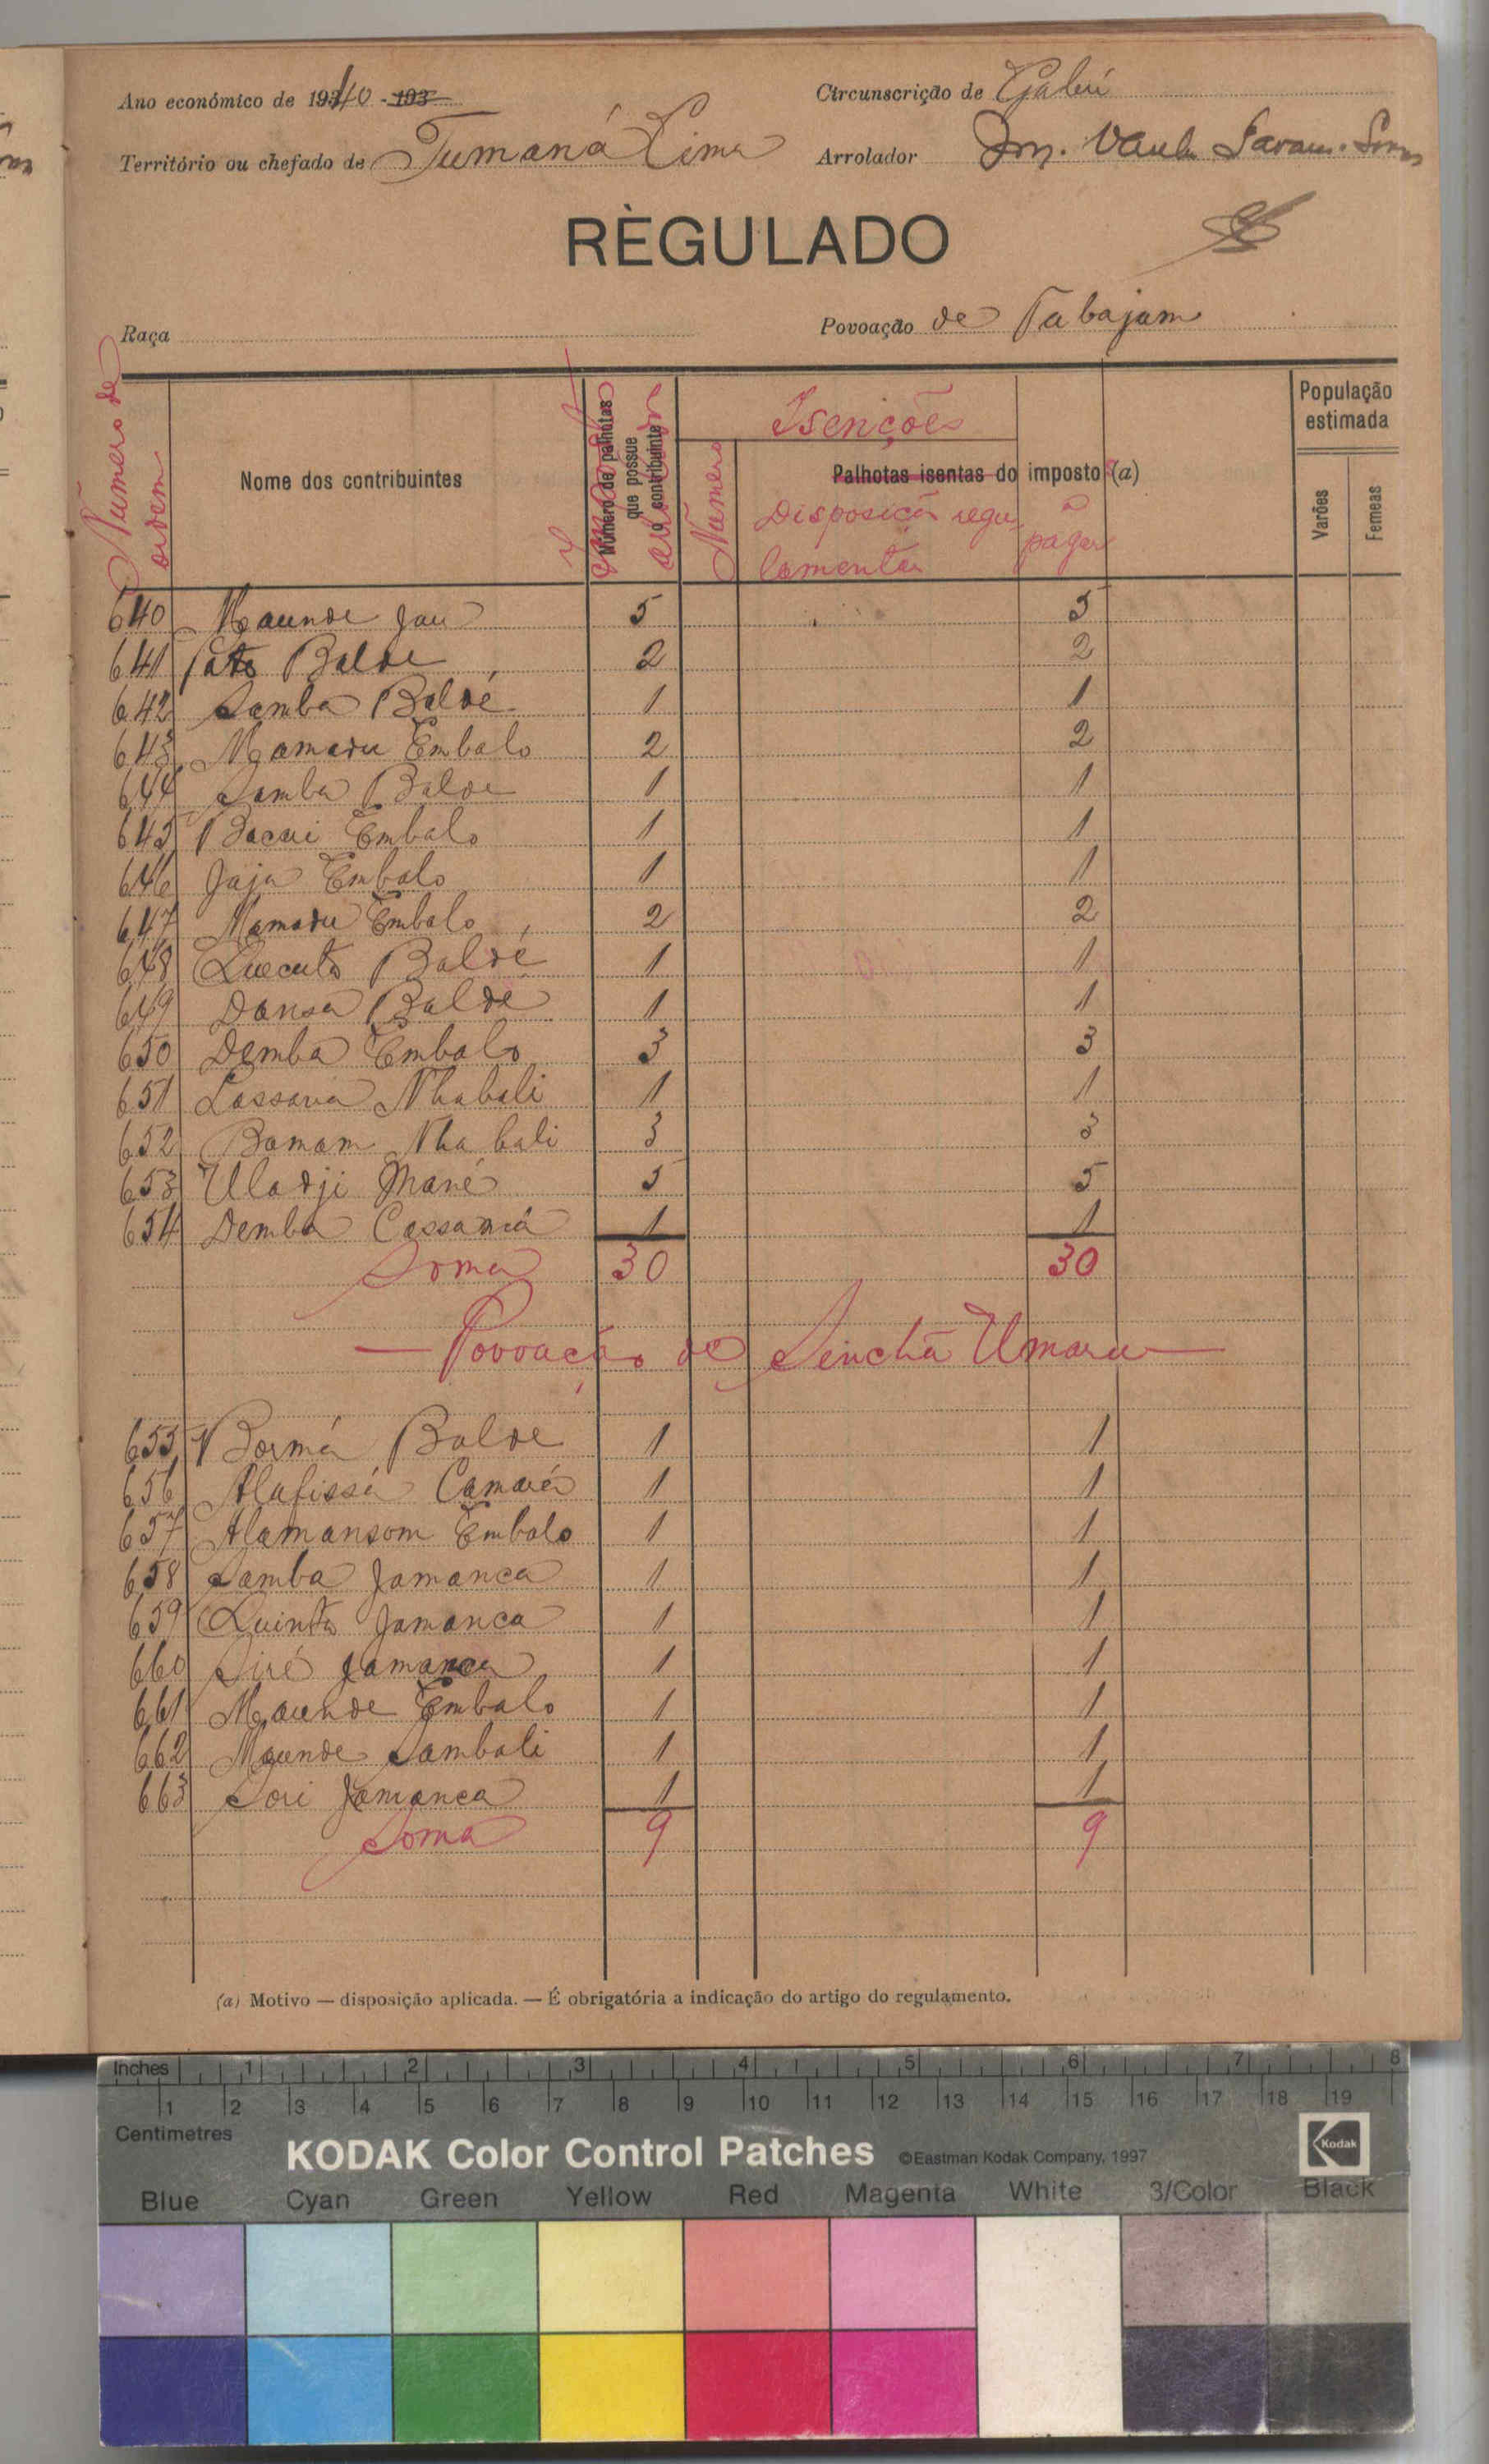 Ano económico de 1940 - 193
Circunscrição de Gabú
Território ou chefado de Tumaná Cima
Arrolador
RÈGULADO
Raça
Povoação de Tabajam
Numero de ordem
Nome dos contribuintes
Número de palhotas que possue o contribuinte
Isenções
Numero
Palhotas isentas do imposto (a)
Disposição regulamentar
a pagar
População estimada
Varões
Femeas
640 Maunde Jau 5 5
641 Sato Balde 2 2
642 Samba Baldé 1 1
643 Mamadu Embalo 2 2
644 Samba Balde 1 1
645 Bacari Embalo 1 1
646 Jaja Embalo 1 1
647 Mamadu Embalo 2 2
648 Quecuto Baldé 1 1
649 Dansa Baldé 1 1
650 Demba Embalo 3 3
651 Lassana Nhabali 1 1
652 Bamam Nhabali 3 3
653 Uladji Mané 5 5
654 Demba Cassamá 1 1
Soma 30 30
— Povoação de Sinchã Umaru —
655 Bormá Balde 1 1
656 Alafissá Camará 1 1
657 Alamansom Embalo 1 1
658 Samba Jamanca 1 1
659 Quinto Jamanca 1 1
660 Siré Jamanca 1 1
661 Maunde Embalo 1 1
662 Maunde Sambali 1 1
663 Sori Jamanca 1 1
Soma 9 9
(a) Motivo — disposição aplicada. — É obrigatória a indicação do artigo do regulamento.
Inches 1 2 3 4 5 6 7 8
1 2 3 4 5 6 7 8 9 10 11 12 13 14 15 16 17 18 19
Centimetres
KODAK Color Control Patches ©Eastman Kodak Company, 1997 Kodak
Blue Cyan Green Yellow Red Magenta White 3/Color Black